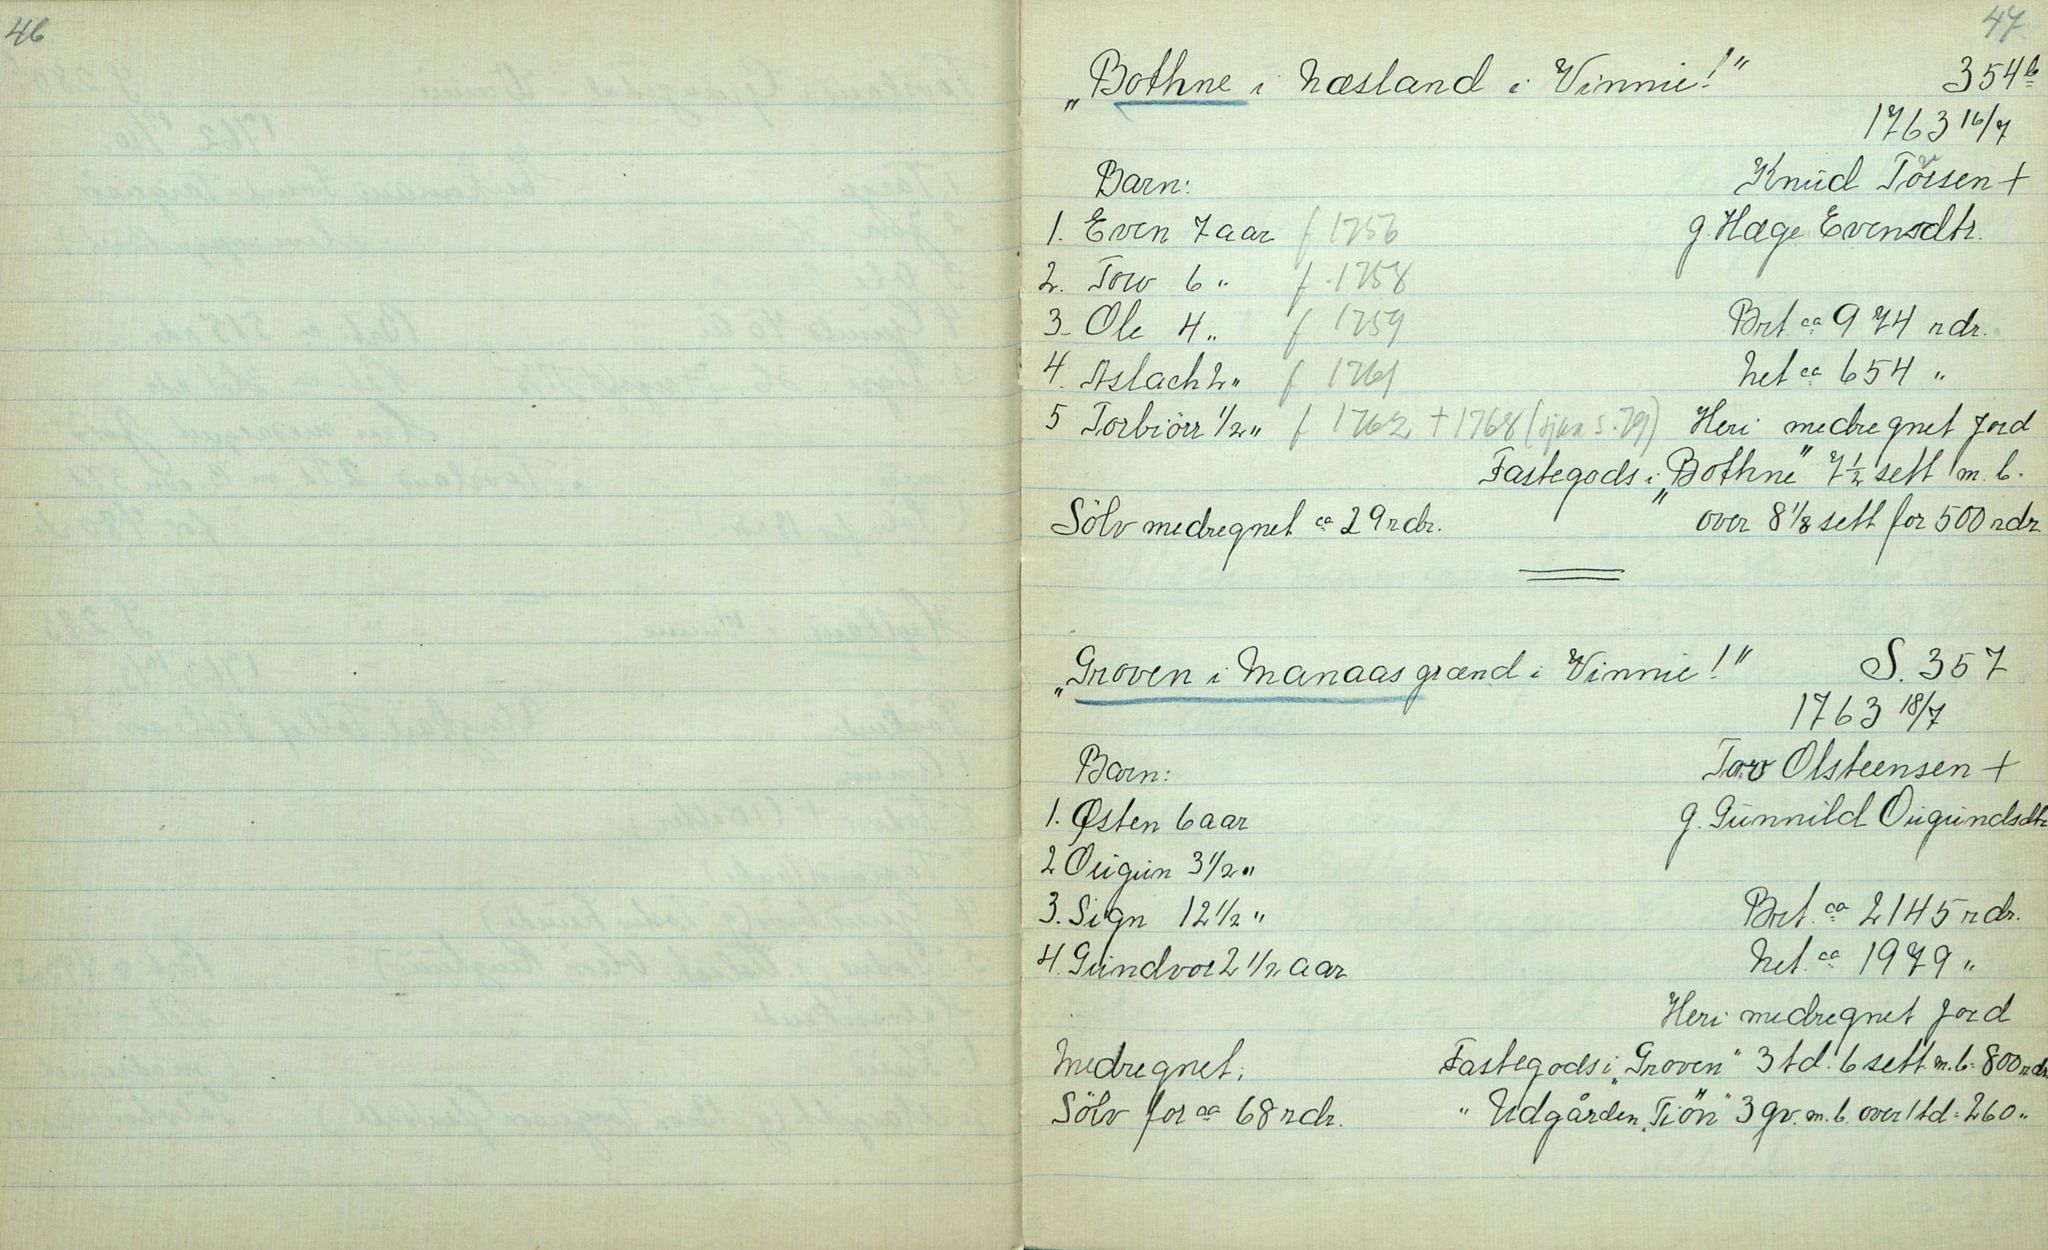 46
47
„Bothne i Næsland i Vinnie!" 354 b
1763 16/7
Barn: Knud Torsen +
1. Even 7 aar f 1756 g. Hæge Evensdtr.
2. Tov 6 " f. 1758
3. Ole 4 " f 1759 Brt. ca 974 rdr.
4. Aslach 2 " f 1761 Net ca 654 "
5 Torbiör 1/2 " f 1762 + 1768 (sjaa s. 79) Heri medregnet Jord
Fastegods i „Bothne" 7 1/2 sett m. b.
Sölv medregnet ca 29 rdr. over 8 1/8 sett for 500 rdr
„Groven i Manaas grænd i Vinnie!" S. 357
1763 18/7
Barn: Tov Olsteensen +
1. Østen 6 aar g. Gunnild Ougundsdtr
2 Ougun 3 1/2 "
3. Sign 12 1/2 " Brt. ca 2145 rdr.
4. Gundvor 2 1/2 aar Net. ca 1979 "
Heri medregnet Jord
Medregnet: Fastegods i „Groven" 3 td. 6 sett m. b. 800 rdr
Sölv for ca 68 rdr. " Udgården „Tiön" 3 gv. m. b. over 1 td = 260 "